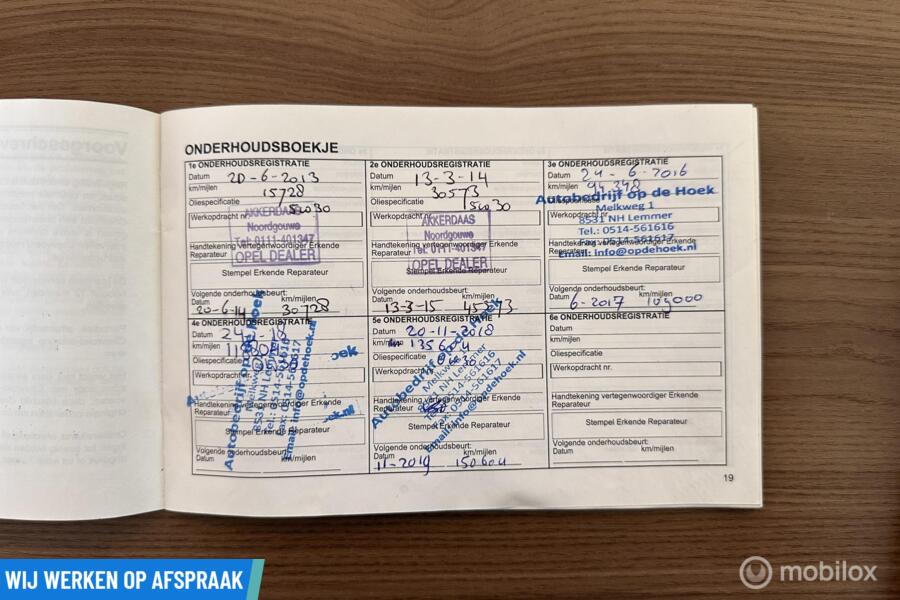 Voorgeschrev
ONDERHOUDSBOEKJE
1e ONDERHOUDSREGISTRATIE
Datum 20-6-2013
km/mijlen 15728
Oliespecificatie 5w30
Werkopdracht nr.
AKKERDAAS
Noordgouwe
Tel: 0111-401347
OPEL DEALER
Handtekening vertegenwoordiger Erkende
Reparateur
Stempel Erkende Reparateur
Volgende onderhoudsbeurt:
Datum km/mijlen
20-6-14 30728
2e ONDERHOUDSREGISTRATIE
Datum 13-3-14
km/mijlen 30573
Oliespecificatie 5w30
Werkopdracht nr.
AKKERDAAS
Noordgouwe
Tel: 0111-401347
OPEL DEALER
Handtekening vertegenwoordiger Erkende
Reparateur
Stempel Erkende Reparateur
Volgende onderhoudsbeurt:
Datum km/mijlen
13-3-15 45573
3e ONDERHOUDSREGISTRATIE
Datum 24-6-2016
km/mijlen 94398
Oliespecificatie
Autobedrijf op de Hoek
Melkweg 1
Werkopdracht nr.
8531 NH Lemmer
Tel.: 0514-561616
Fax: 0514-561617
Email: info@opdehoek.nl
Handtekening vertegenwoordiger Erkende
Reparateur
Stempel Erkende Reparateur
Volgende onderhoudsbeurt:
Datum km/mijlen
6-2017 109000
4e ONDERHOUDSREGISTRATIE
Datum
km/mijlen
Oliespecificatie
Werkopdracht nr.
Handtekening vertegenwoordiger Erkende
Reparateur
Stempel Erkende Reparateur
Volgende onderhoudsbeurt:
Datum km/mijlen
Autobedrijf op de Hoek
Melkweg 1
8531 NH Lemmer
Tel.: 0514-561616
Fax: 0514-561617
Email: info@opdehoek.nl
oek
k.nl
5e ONDERHOUDSREGISTRATIE
Datum 20-11-2018
km 135604
Oliespecificatie
Werkopdracht nr.
Handtekening vertegenwoordiger Erkende
Reparateur
Stempel Erkende Reparateur
Volgende onderhoudsbeurt:
Datum km/mijlen
11-2019 150604
Autobedrijf op de Hoek
Melkweg 1
8531 NH Lemmer
Tel.: 0514-561616
Fax: 0514-561617
Email: info@opdehoek.nl
6e ONDERHOUDSREGISTRATIE
Datum
km/mijlen
Oliespecificatie
Werkopdracht nr.
Handtekening vertegenwoordiger Erkende
Reparateur
Stempel Erkende Reparateur
Volgende onderhoudsbeurt:
Datum km/mijlen
19
WIJ WERKEN OP AFSPRAAK
mobilox